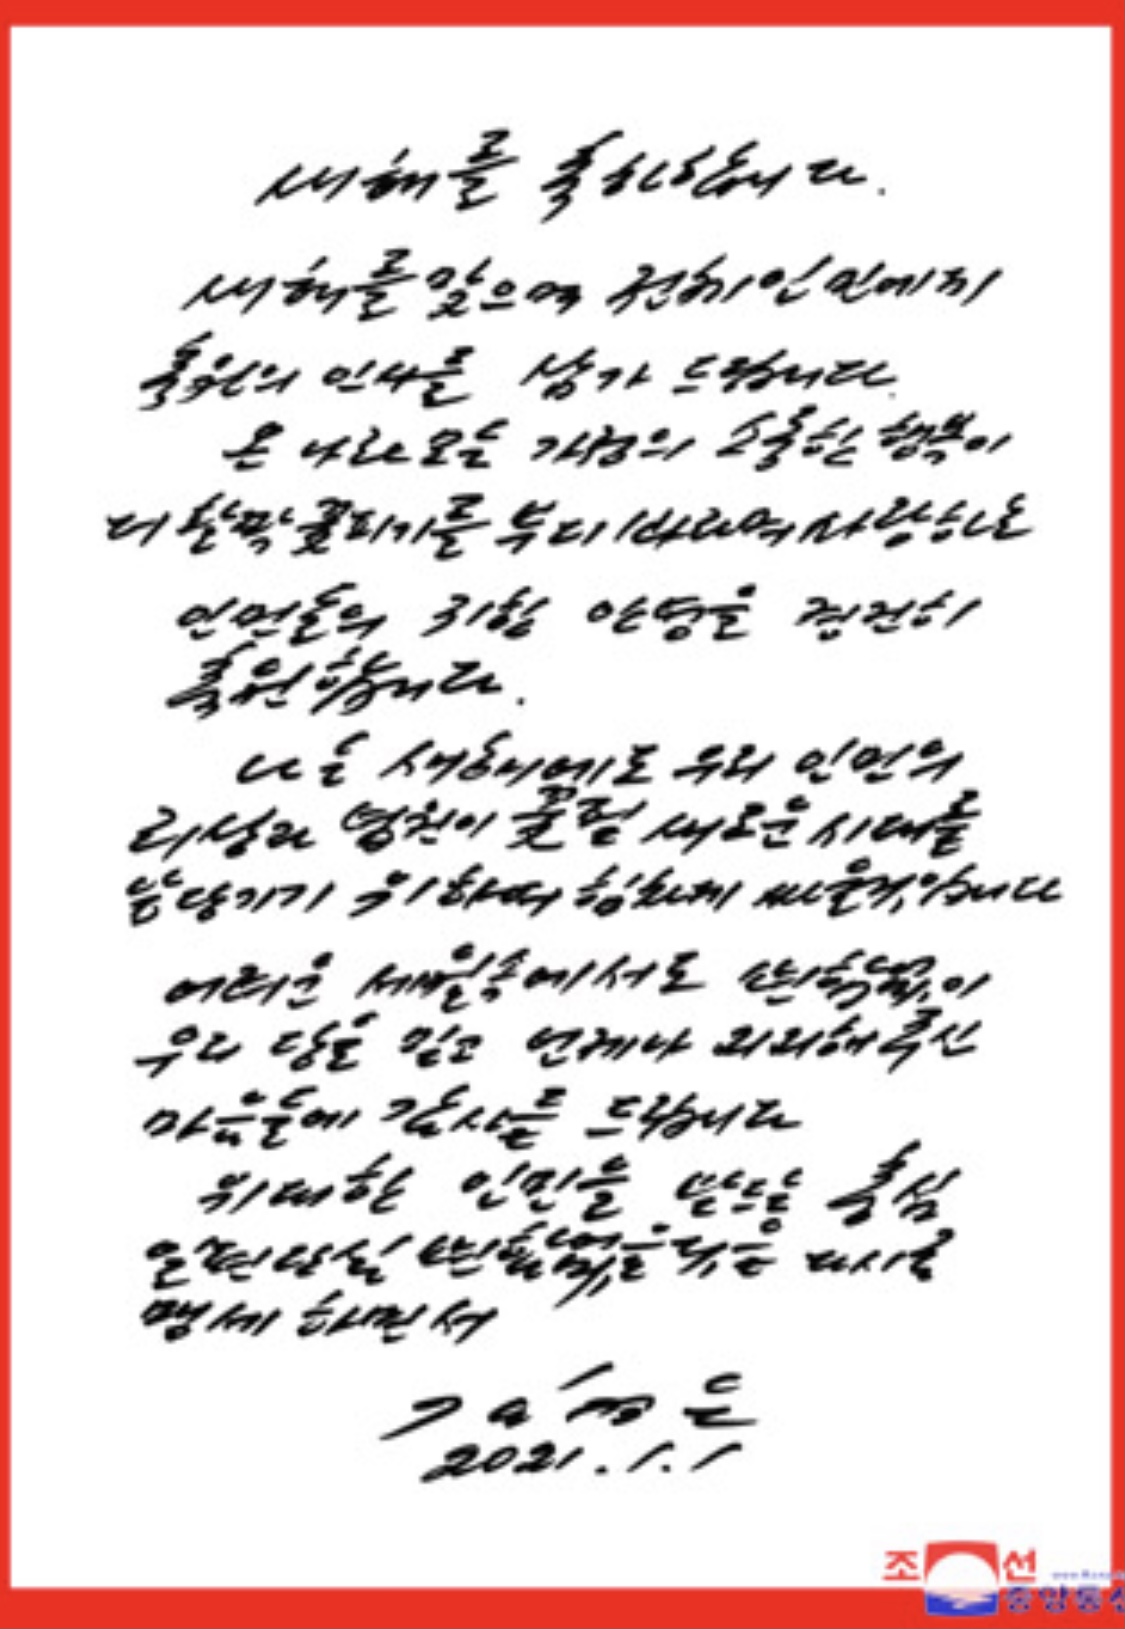 새해를 축하합니다.
새해를 맞으며 전체 인민에게
축원의 인사를 삼가 드립니다.
온 나라 모든 가정의 소중한 행복이
더 활짝 꽃피기를 부디 바라며 사랑하는
인민들의 귀한 안녕을 경건히
축원합니다.
나는 새해에도 우리 인민의
리상과 념원이 꽃필 새로운 시대를
앞당기기 위하여 힘차게 싸울것입니다
어려운 세월속에서도 변함없이
우리 당을 믿고 언제나 지지해주신
마음들에 감사를 드립니다
위대한 인민을 받드는 충심
일편단심 변함없을것을 다시금
맹세하면서
김정은
2021.1.1
조선
중앙통신